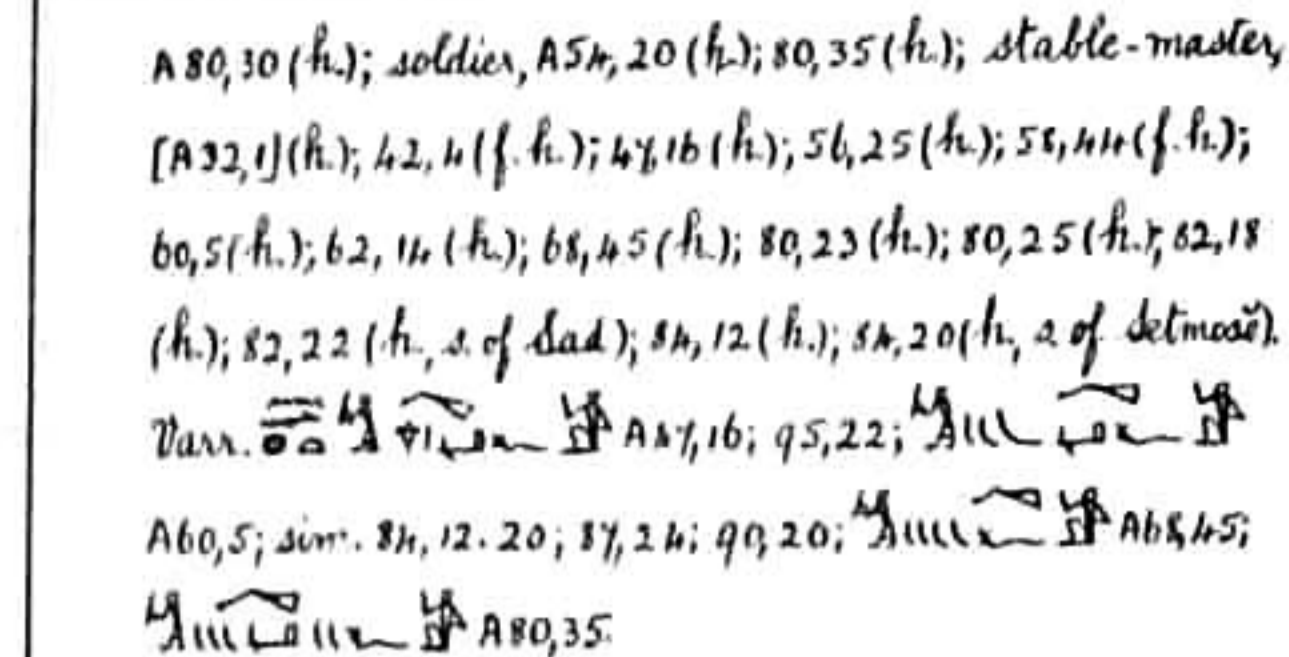 A80,30(h.); soldier, A54,20(h.); 80,35(h.); stable-master,
[A32,1](h.); 42,4(f.h.); 47,16(h.); 56,25(h.); 58,44(f.h.);
60,5(h.); 62,14(h.); 68,45(h.); 80,23(h.); 80,25(h.); 82,18
(h.); 82,22(h., s. of Sad); 84,12(h.); 84,20(h., s. of Setmosĕ).
Varr. A47,16; 95,22;
A60,5; sim. 84,12.20; 87,24; 90,20; A68,45;
A80,35.